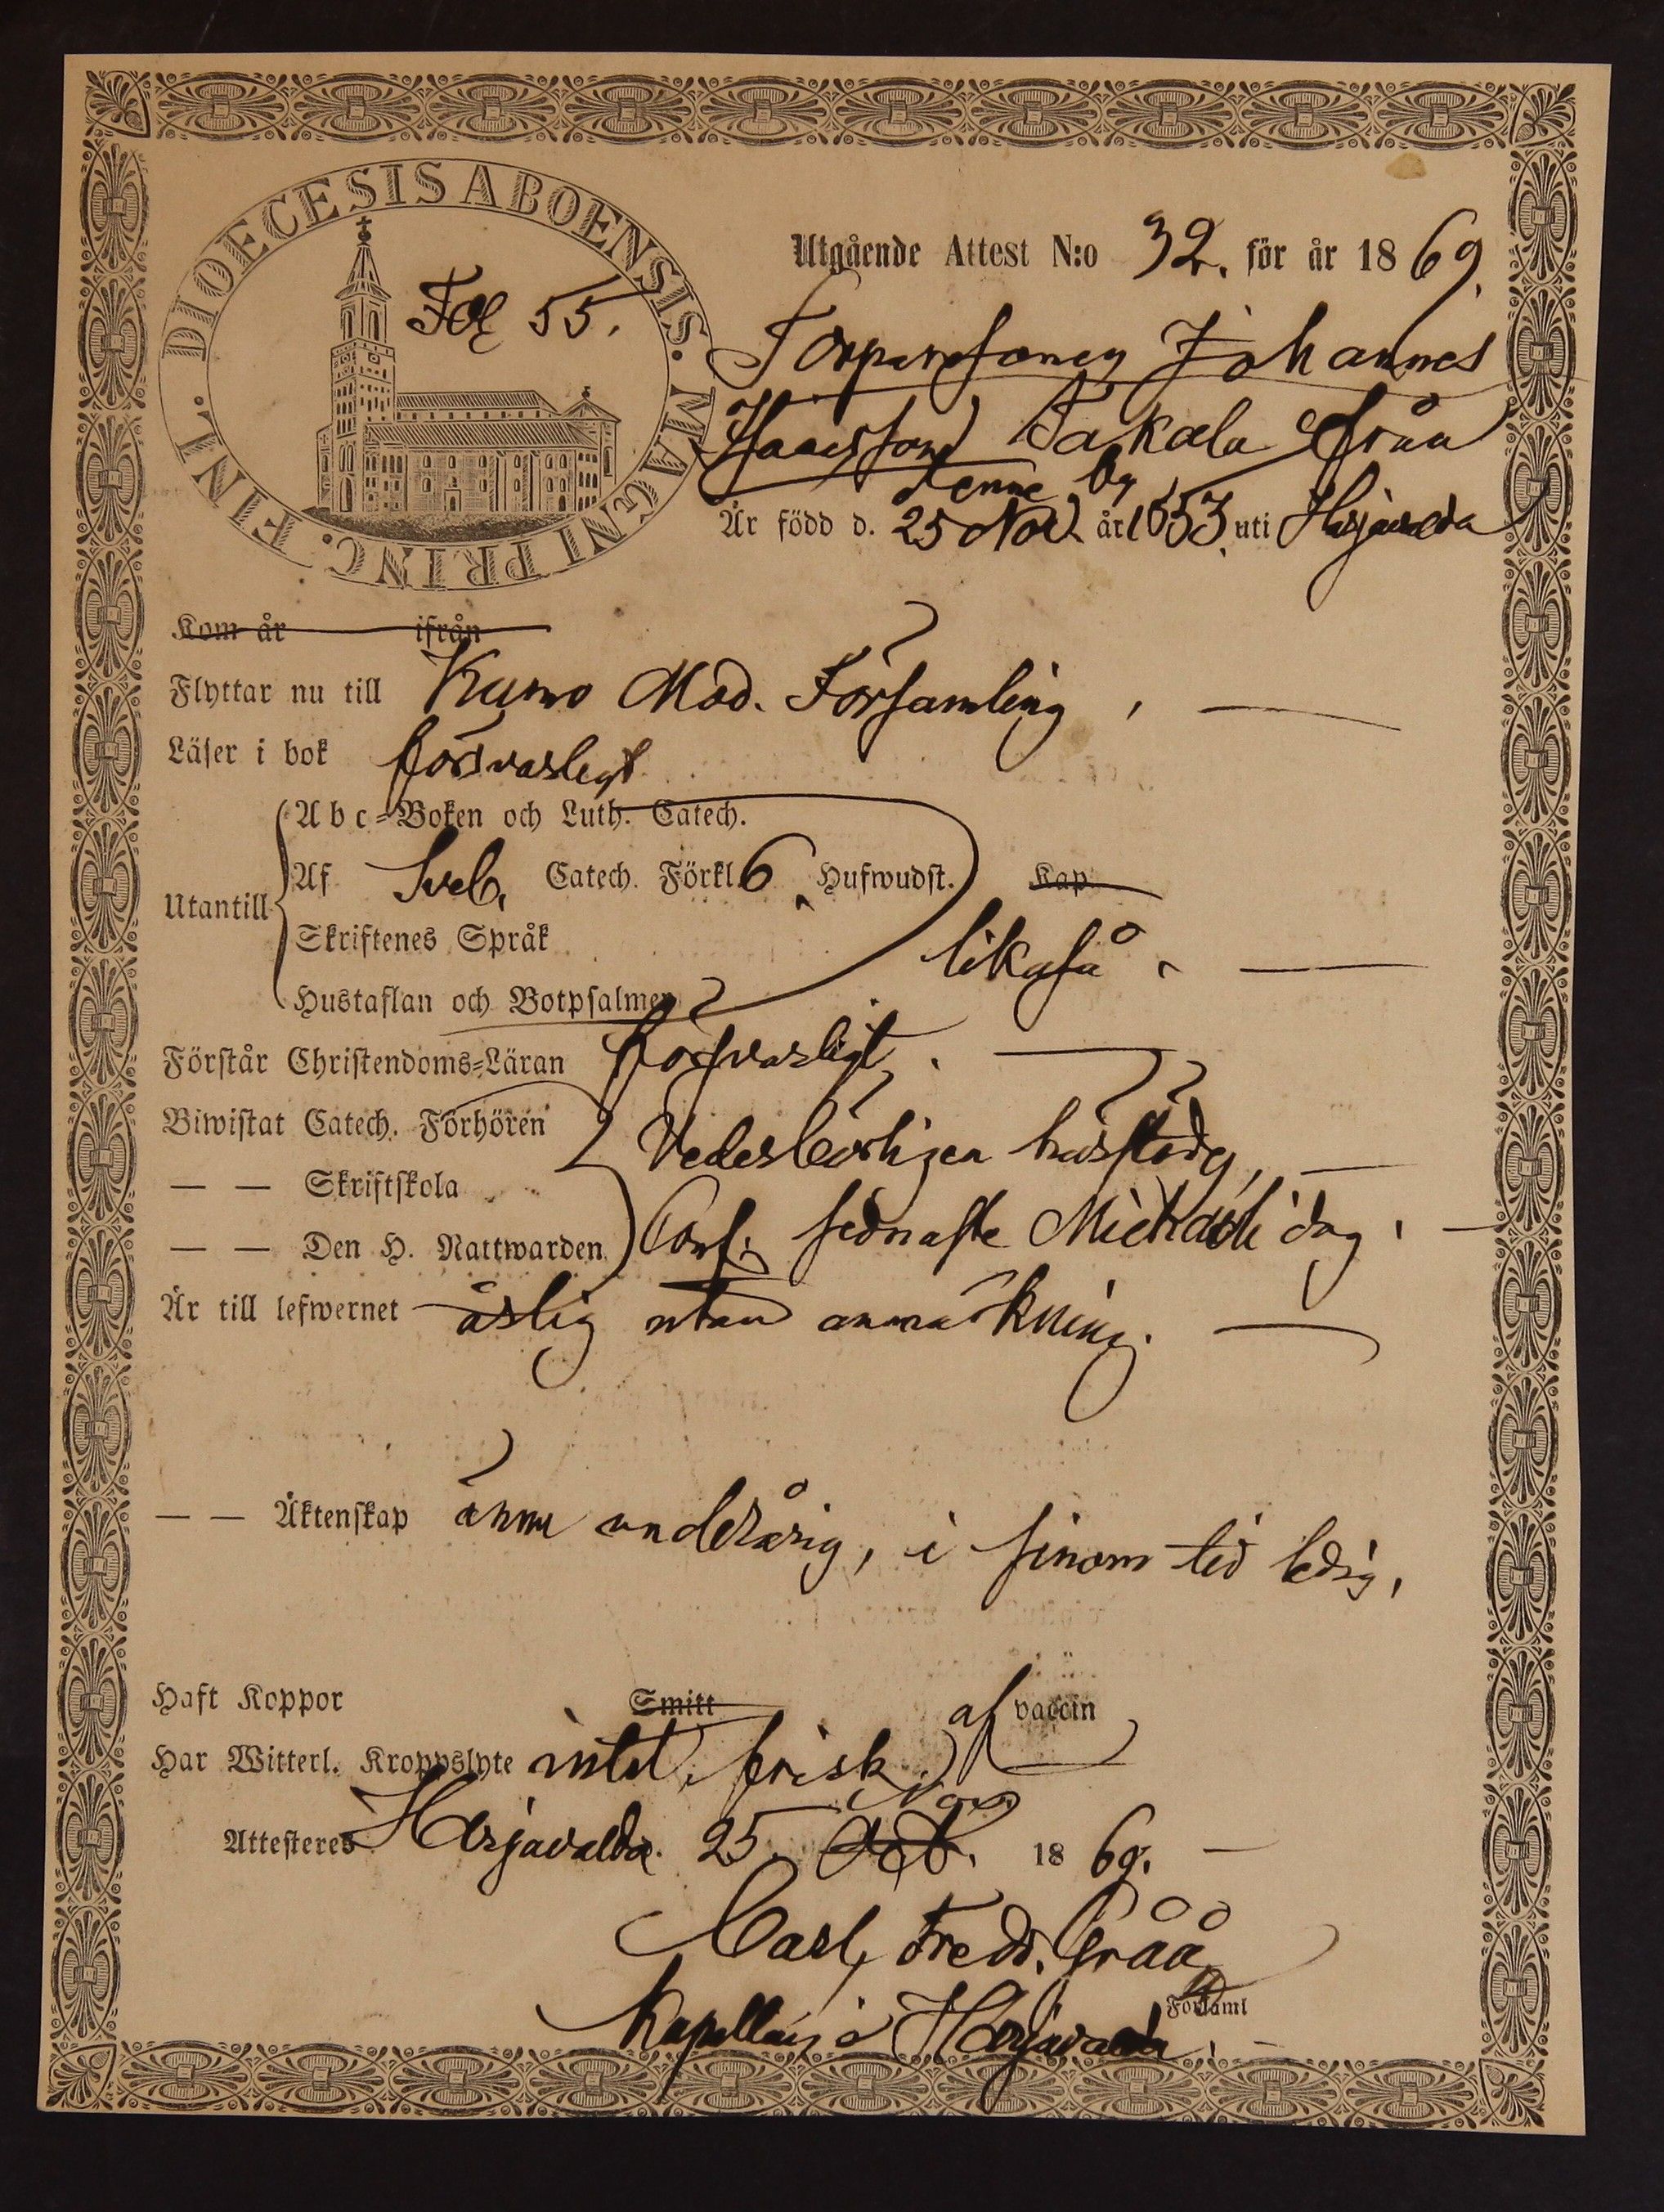 DIOECESIS ABOENSIS. MAGNI PRINC. FINL.
Fol 55.
Utgående Attest N:o 32. för år 1869.
Torparesonen Johannes
Isaacsson Takala från
denne by
Är född d. 25 Nov. år 1853. uti Harjavalda
Kom år ifrån
Flyttar nu till Kumo Mod. Församling,
Läser i bok försvarligt
Abc-Boken och Luth. Catech.
Utantill Af Sveb. Catech. Förkl. 6 Hufwudst. Kap.
Skriftenes Språk likaså
Hustaflan och Botpsalmer
Förstår Christendoms-Läran försvarligt.
Biwistat Catech. Förhören Vederbörligen
— — Skriftskola
— — Den H. Nattwarden Conf. sednaste Michaeli dag.
Är till lefwernet ärlig utan anmärkning.
— — Äktenskap ännu underårig, i sinom tid ledig,
Haft Koppor Smitt af vaccin
Har Witterl. Kroppslyte intet, frisk.
Nov.
Attesteres Harjavalda. 25. Oct. 1869.
Carl Fredr. Gråå
Kapellan i Harjavalda Församl